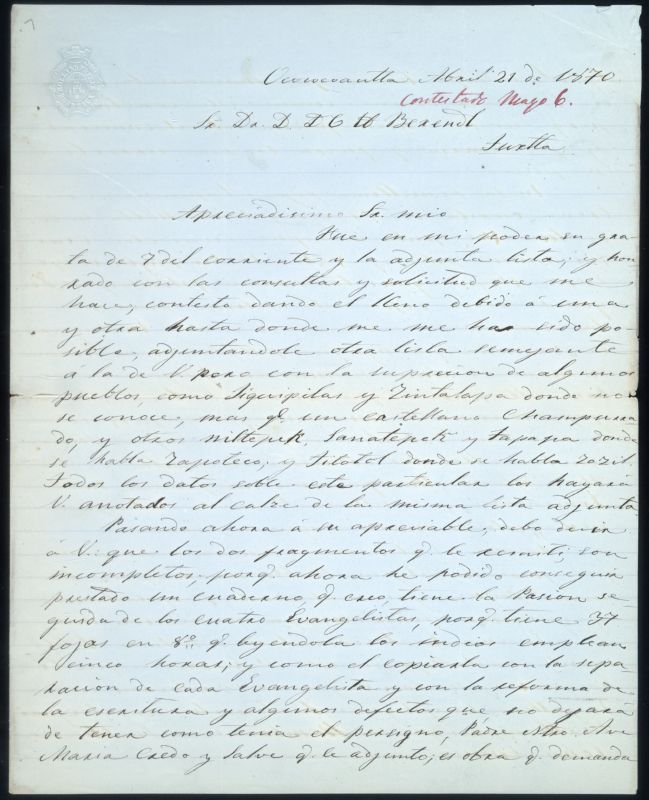 Ocozocoautla Abril 21 de 1870
Contestado Mayo 6.
Sr. Dr. D. C H Berendt
Tuxtla
Apreciadisimo Sr. mio
Fue en mi poder su gra-
ta de 7 del corriente y la adjunta lista; y hon-
rado con las consultas y solicitud que me
hace, contesto dando el lleno debido á una
y otra hasta donde me me ha sido po-
sible, adjuntandole otra lista semejante
á la de V. pero con la supresion de algunos
pueblos, como Jiquipilas y Zintalapa donde no
se conoce, mas q. un castellano Champurra-
do, y otros Niltepek, Sanatepek y Tapana donde
se habla Zapoteco; y Jitotol donde se habla Zozil.
Todos los datos sobre este particular los hayará
V. anotados al calze de la misma lista adjunta.
Pasando ahora á su apreciable, debo decir
á V. que los dos fragmentos q. le remití, son
incompletos, porq. ahora he podido conseguir
prestado un cuaderno q. creo tiene la Pasion se-
guida de los cuatro Evangelistas, porq. tiene 37
fojas en 8.º q. leyendola los indios emplean
cinco horas; y como el copiarla con la sepa-
racion de cada Evangelista y con la reforma de
la escritura y algunos defectos que no dejará
de tener como tenia el persigno, Padre Ntro. Ave
Maria Credo y Salve q. le adjunto; es obra q. demanda